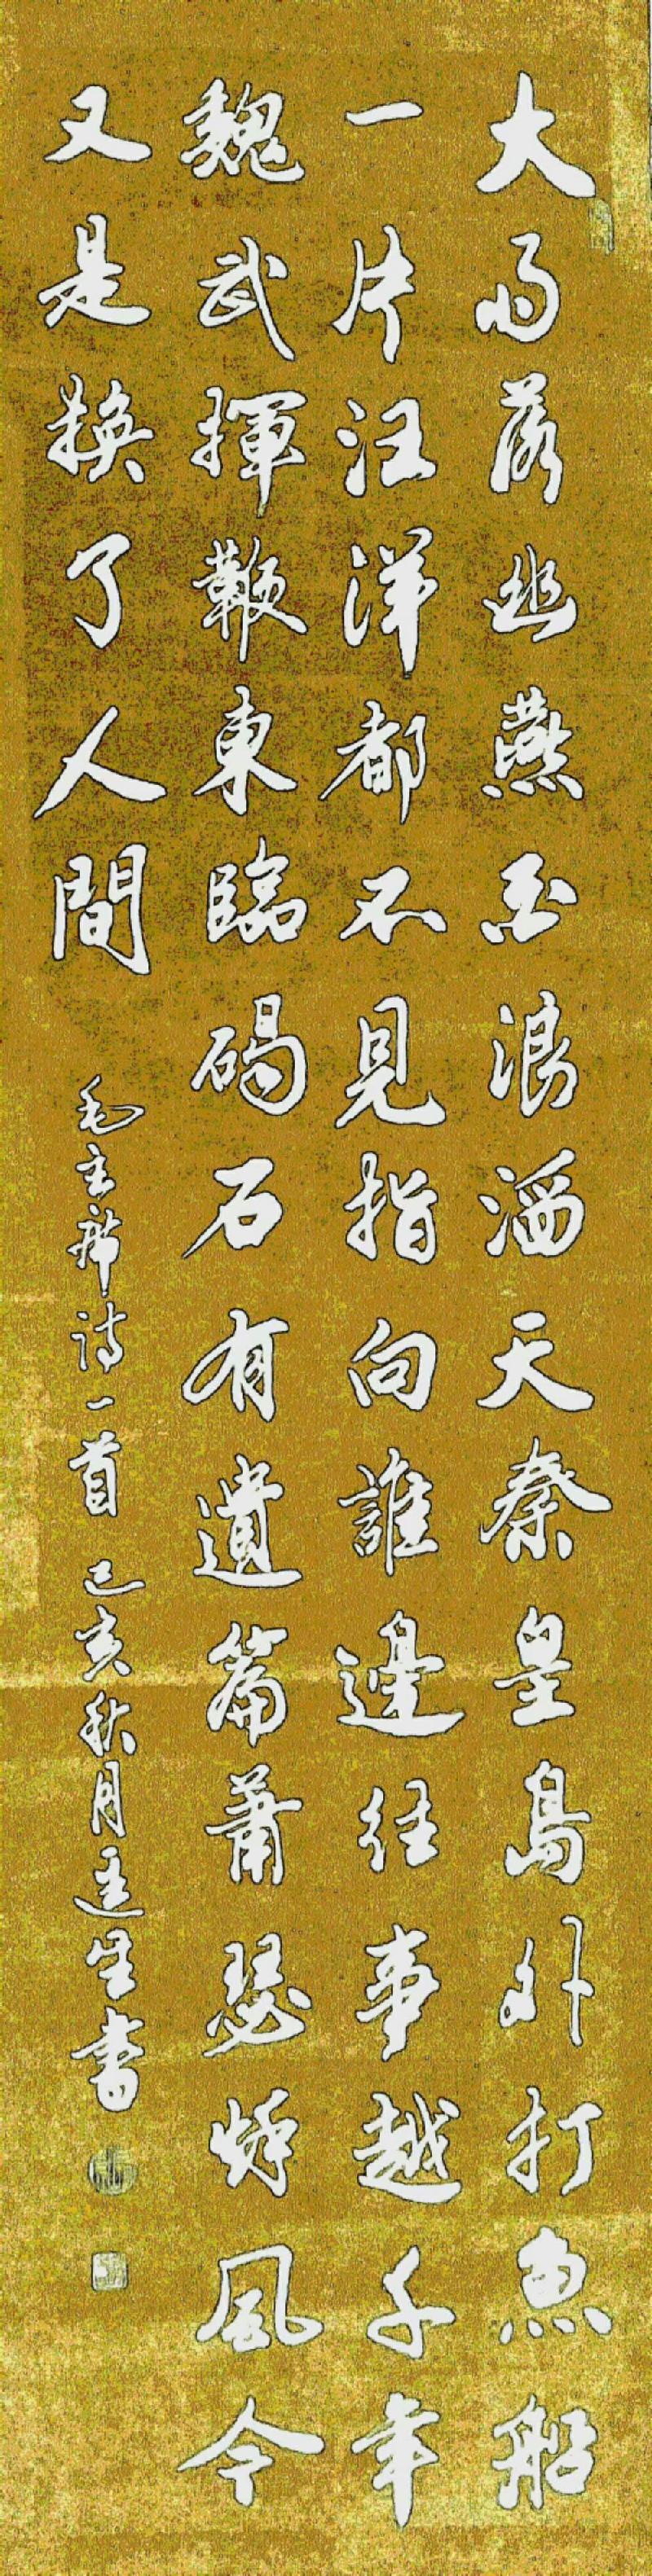 大雨落幽燕白浪滔天秦皇島外打魚船
一片汪洋都不見指向誰邊往事越千年
魏武揮鞭東臨碣石有遺篇蕭瑟秋風今
又是換了人間
毛主席诗一首 己亥秋月生書